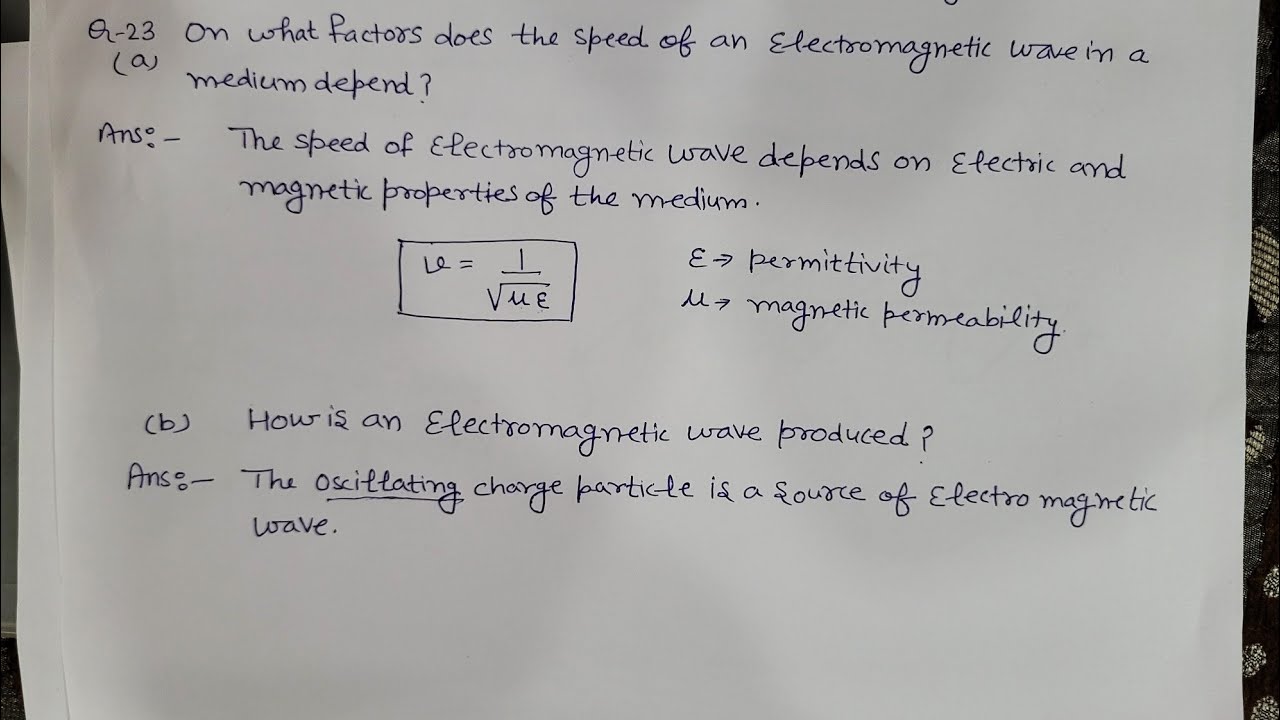 Q-23 On what factors does the speed of an Electromagnetic wave in a
(a) medium depend?
Ans:- The speed of Electromagnetic wave depends on Electric and
magnetic properties of the medium.
v = 1/√με
ε → permittivity
μ → magnetic permeability.
(b) How is an Electromagnetic wave produced?
Ans:- The oscillating charge particle is a source of Electro magnetic
wave.